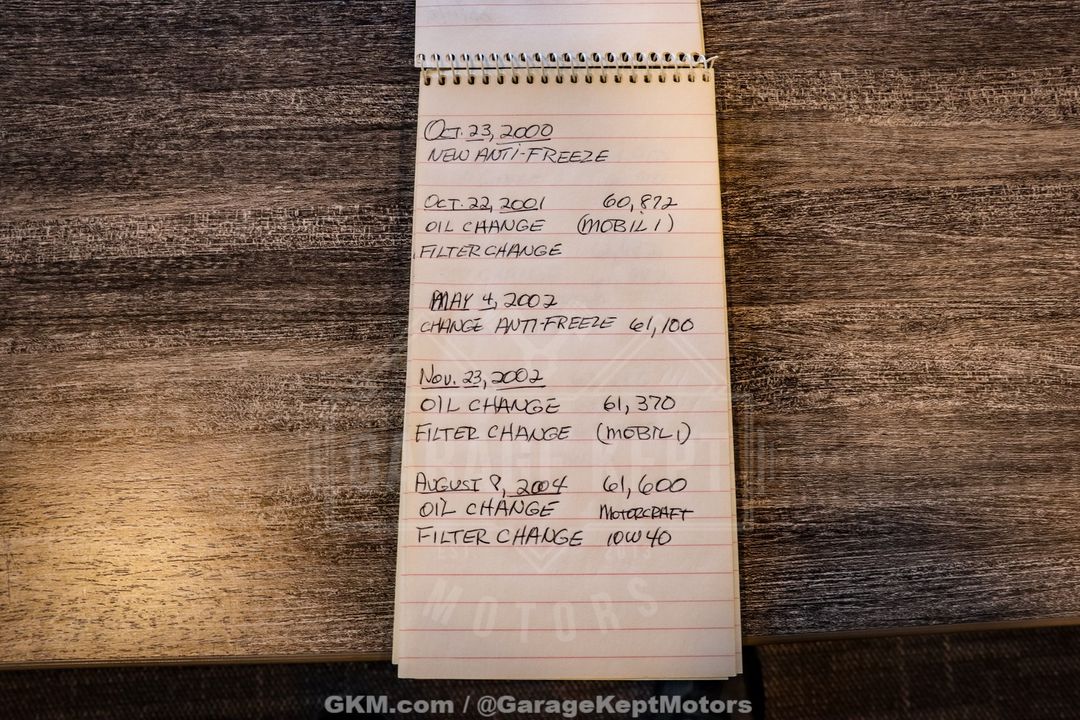 Oct. 23, 2000
NEW ANTI-FREEZE
Oct. 22, 2001 60,872
OIL CHANGE (MOBIL 1)
FILTER CHANGE
MAY 4, 2002
CHANGE ANTI-FREEZE 61,100
Nov. 23, 2002
OIL CHANGE 61,370
FILTER CHANGE (MOBIL 1)
AUGUST 8, 2004 61,600
OIL CHANGE MOTORCRAFT
FILTER CHANGE 10W40
GARAGE KEPT
MOTORS
GKM.com / @GarageKeptMotors